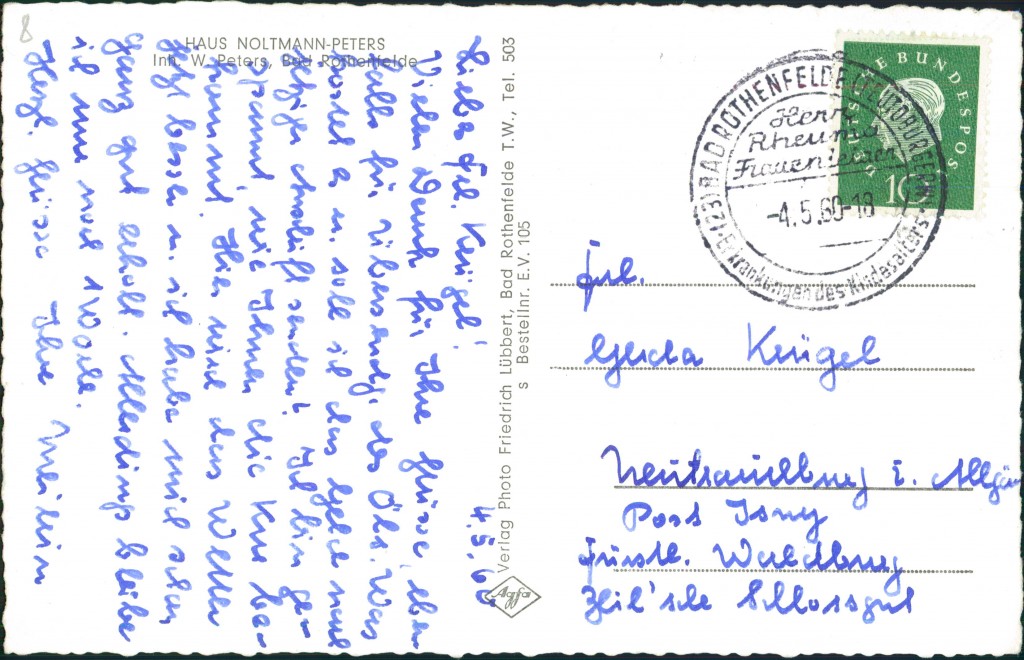 8
HAUS NOLTMANN-PETERS
Inh. W. Peters, Bad Rothenfelde
Liebes Frl. Krügel! 4.5.60
Vielen Dank für Ihre Grüsse, eben-
falls für Übersendg. des Was
kostet es u. soll ich das Geld nach
jetziger Anschrift senden? Ich bin ge-
spannt wie Ihnen die Kur be-
kommt. Hier wird das Wetter
jetzt besser u. ich habe mich schon
ganz gut erholt. Allerdings bleibe
ich nur noch 1 Woche.
Herzl. Grüsse Ihre
Verlag Photo Friedrich Lübbert, Bad Rothenfelde T.W., Tel. 503
s Bestellnr. E.V. 105
Agfa
DEUTSCHE BUNDESPOST
10
(23) BAD ROTHENFELDE (TEUTOBURGERW)
Herz
Rheuma
Frauenleiden
-4.5.60-18
Erkrankungen des Kindesalters
Frl.
Gerda Krügel
Neutrauchburg i. Allgäu
Post Isny
Fürstl. Waldburg
Zeil'sche Schlossgut